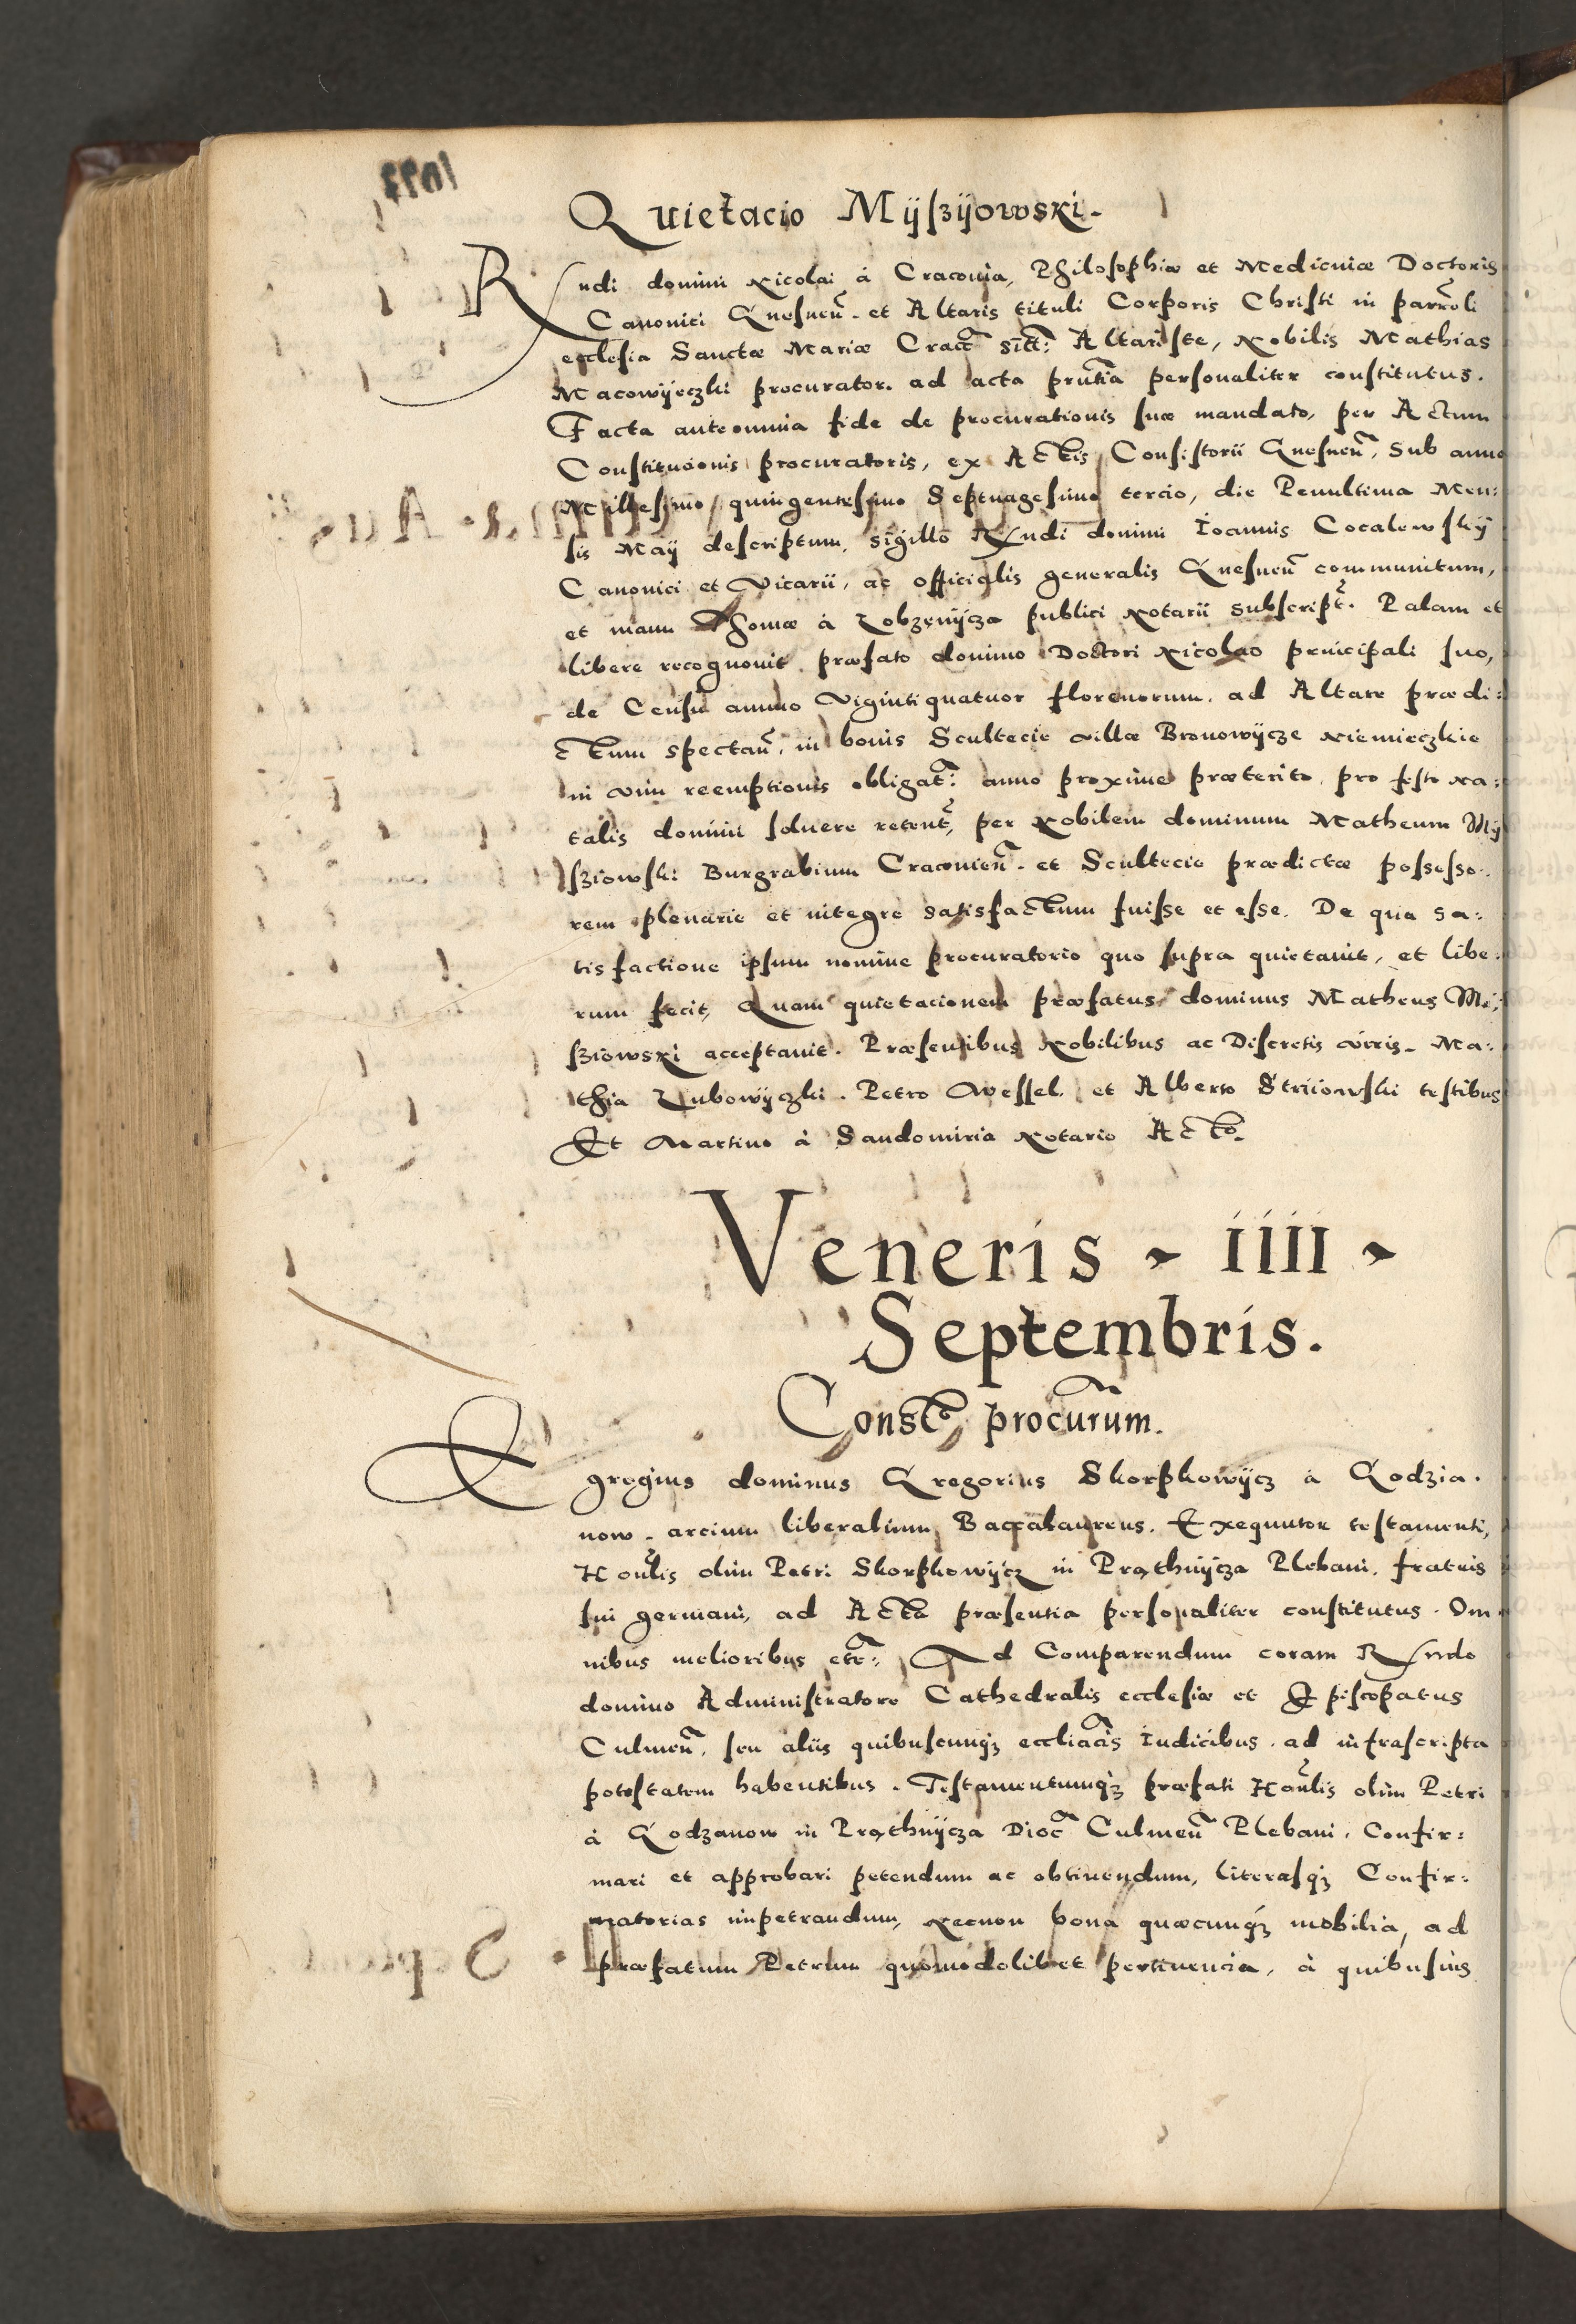 Quietacio Mÿszÿowski.
Rndi domini Nicolai à Cracovia, Philosophiæ et Medicinæ Doctoris
Canonici Gnesneñ. et Altaris tituli Corporis Christi in parroli
ecclesia Sanctæ Mariæ Cracc̃ sitt̃: Altaristæ, Nobilis Mathias
Macowÿeczki procurator. ad acta pr̃ntia personaliter constitutus.
Facta ante omnia fide de procurationis suæ mandato, per Actum
Constitucionis procuratoris, ex Actis Consistorii Gnesneñ, Sub anno
Millesimo quingentesimo Septuagesimo tercio, die Penultima Men:
sis Maÿ descriptum, sigillo Rndi domini Ioannis Cocalewskÿ
Canonici et Vicarii, ac officialis generalis Gnesneñ communitum,
et manu Thomæ à Lobzenÿcza publici Notarii subscript̃. Palam et
libere recognovit præfato domino Doctori Nicolao principali suo,
de Censu annuo Viginti quatuor florenorum, ad Altare prædi:
ctum spectañ, in bonis Scultecie villæ Bronowÿcze Niemieczkie
in vim reemptionis obligat̃: anno proxime præterito, pro festo Na:
talis domini solvere retent̃, per Nobilem dominum Matheum Mÿ
sziowski Burgrabium Cracovieñ. et Scultecie prædictæ possesso:
rem plenarie et integre satisfactum fuisse et esse. De qua sa:
tisfactione ipsum nomine procuratorio quo supra quietavit, et libe:
rum fecit, Quam quietacionem præfatus dominus Matheus Mi:
sziowski acceptavit. Præsentibus Nobilibus ac Discretis viris. Ma:
thia Lubowÿczki. Petro Wessel, et Alberto Striiowski testibus
Et Martino à Sandomiria Notario Acto.
Veneris - IIII -
Septembris.
Consto procurum.
Egregius dominus Gregorius Skorpkowÿcz à Godzia.
now. arcium liberalium Baccalaureus. Exequutor testamenti,
Honlis olim Petri Skorpkowÿcz in Przthnÿcza Plebani, fratris
sui germani, ad Acta præsentia personaliter constitutus. Om
nibus melioribus etc̃: Ad Comparendum coram Rndo
domino Administratore Cathedralis ecclesiæ et Episcopatus
Culmeñ, seu aliis quibuscunqz eccliacis Iudicibus, ad infrascripta
potestatem habentibus. Testamentumqz præfati Honlis olim Petri
à Godzanow in Przthnÿcza Dioc̃ Culmeñ Plebani, Confir:
mari et approbari petendum ac obtinendum, literasqz Confir:
matorias impetrandum, Necnon bona quæcunqz mobilia, ad
præfatum Petrum quomodolibet pertinencia, à quibusvis